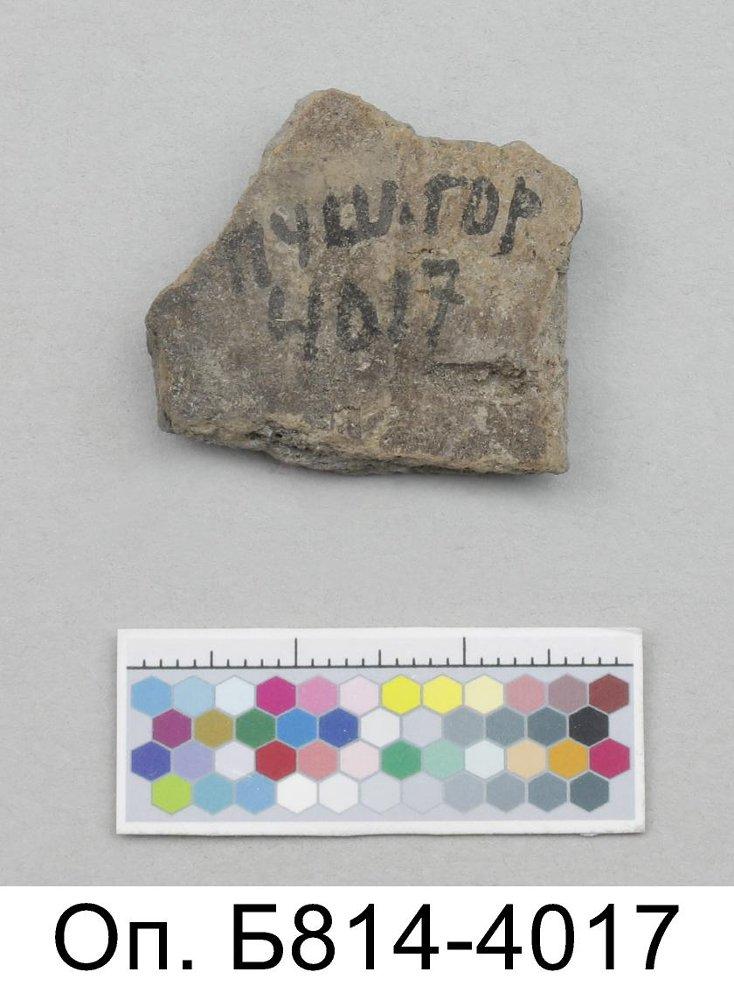 ПУШ.ГОР
4017
Оп. Б814-4017